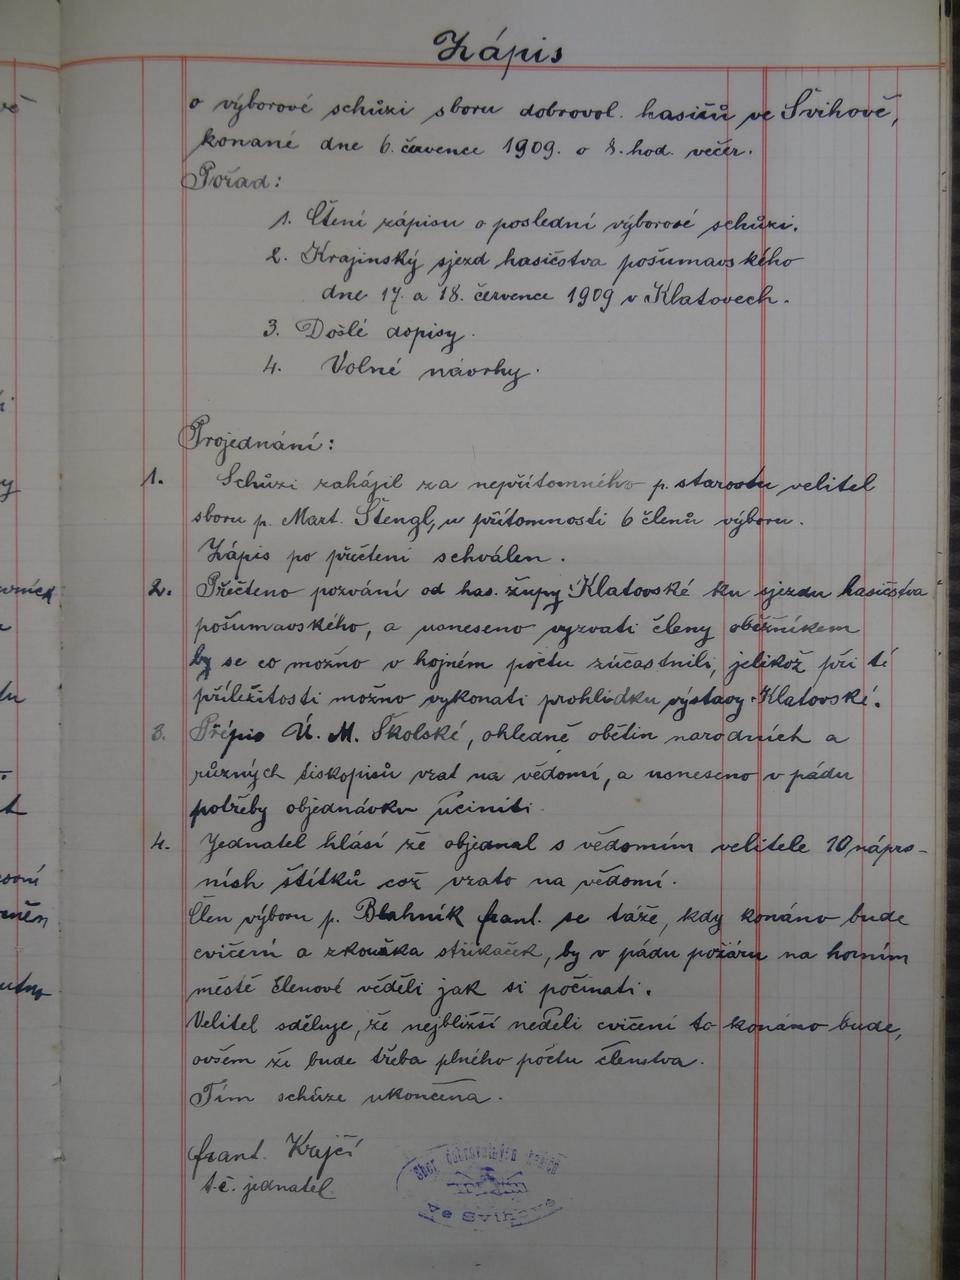 Zápis
o výborové schůzi sboru dobrovol. hasičů ve Švihově,
konané dne 6. července 1909. o 8. hod. večer.
Pořad:
1. Čtení zápisu o poslední výborové schůzi.
2. Krajinský sjezd hasičstva pošumavského
dne 17. a 18. července 1909 v Klatovech.
3. Došlé dopisy.
4. Volné návrhy.
Projednání:
1. Schůzi zahájil za nepřítomného p. starostu velitel
sboru p. Mart. Štengl, u přítomnosti 6 členů výboru.
Zápis po přečtení schválen.
2. Přečteno pozvání od has. župy Klatovské ku sjezdu hasičstva
pošumavského, a usneseno vyzvati členy oběžníkem
by se co možno v hojném počtu zúčastnili, jelikož při té
příležitosti možno vykonati prohlídku výstavy Klatovské.
3. Přípis Ú. M. Školské, ohledně obětin národních a
různých tiskopisů vzat na vědomí, a usneseno v pádu
potřeby objednávku učiniti.
4. Jednatel hlásí že objednal s vědomím velitele 10 nápro-
ních štítků což vzato na vědomí.
Člen výboru p. Blahník frant. se táže, kdy konáno bude
cvičení a zkouška stříkaček, by v pádu požáru na horním
městě členové věděli jak si počínati.
Velitel sděluje, že nejbližší neděli cvičení to konáno bude,
ovšem že bude třeba plného počtu členstva.
Tím schůze ukončena.
frant. Krejčí
t. č. jednatel.
Sbor dobrovolných hasičů
ve Švihově